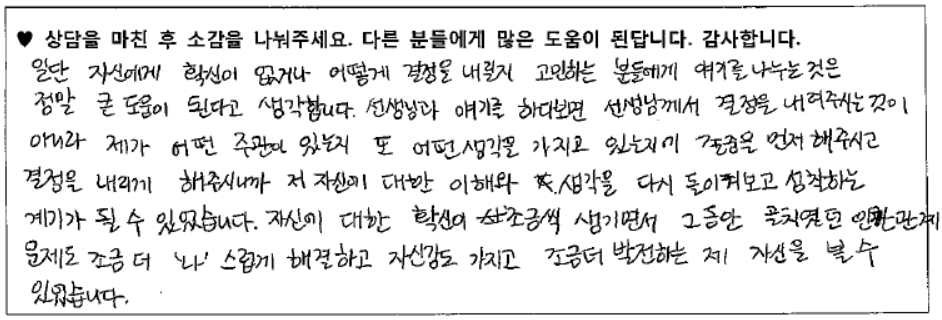 ♥ 상담을 마친 후 소감을 나눠주세요. 다른 분들에게 많은 도움이 된답니다. 감사합니다.
일단 자신에게 확신이 없거나 어떻게 결정을 내릴지 고민하는 분들에게 얘기를 나누는 것은
정말 큰 도움이 된다고 생각합니다. 선생님과 얘기를 하다보면 선생님께서 결정을 내려주시는 것이
아니라 제가 어떤 주관이 있는지 또 어떤 생각을 가지고 있는지에 집중을 먼저 해주시고
결정을 내리게 해주시니까 저 자신에 대한 이해와 생각을 다시 돌이켜보고 성찰하는
계기가 될 수 있었습니다. 자신에 대한 확신이 조금씩 생기면서 그동안 골치였던 인간관계
문제도 조금 더 '나' 스럽게 해결하고 자신감도 가지고 조금더 발전하는 제 자신을 볼 수
있었습니다.